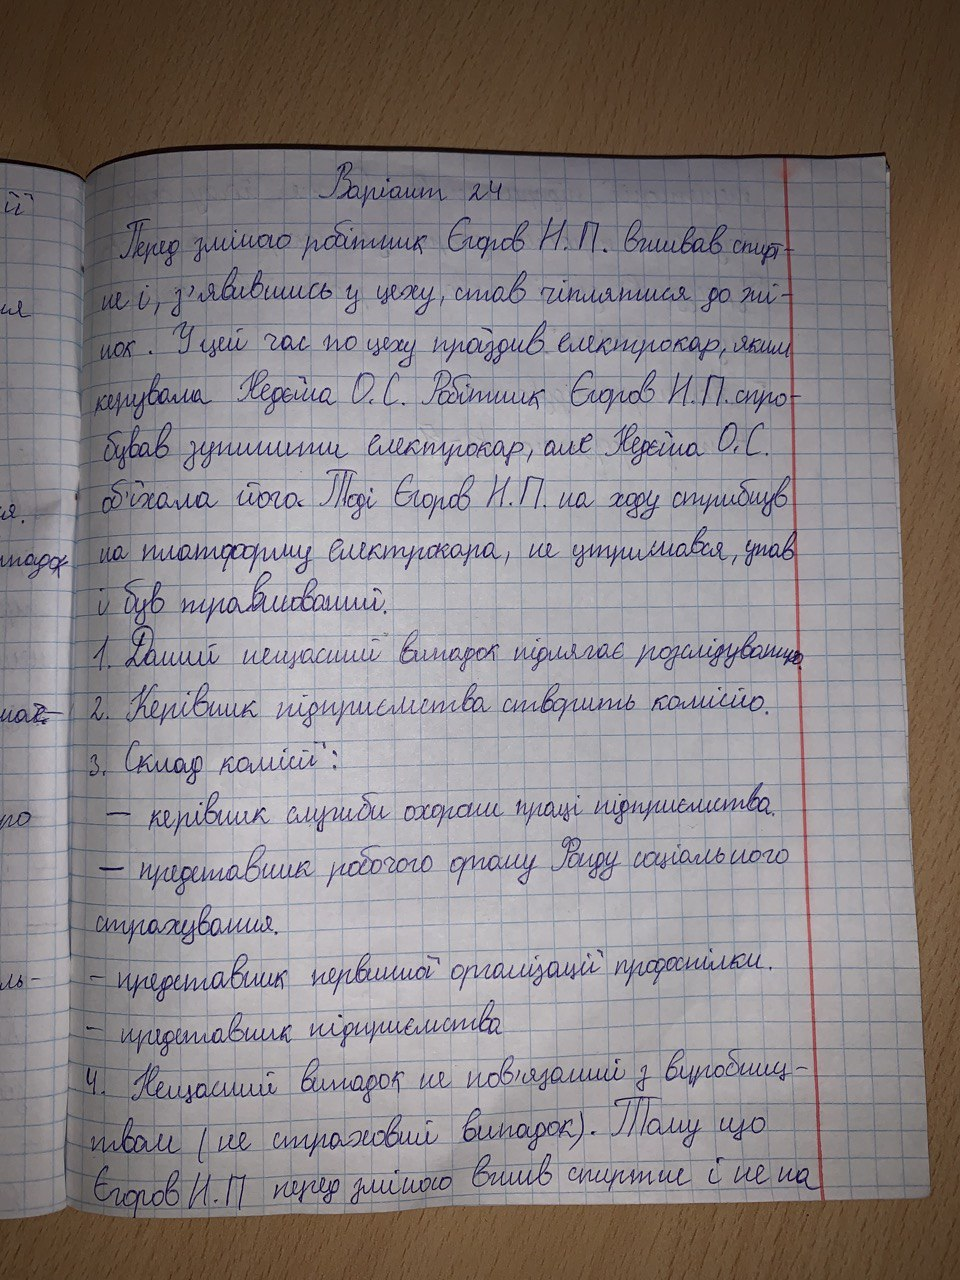 Варіант 24
Перед зміною робітник Єгоров Н.П. випивав спирт-
не і, з'явившись у цеху, став чіплятися до жі-
нок. У цей час по цеху проїздив електрокар, яким
керувала Недєйа О.С. Робітник Єгоров Н.П. спро-
бував зупинити електрокар, але Недєйа О.С.
об'їхала його. Тоді Єгоров Н.П. на ходу стрибнув
на платформу електрокара, не утримався, упав
і був травмований.
1. Даний нещасний випадок підлягає розслідуванню.
2. Керівник підприємства створить комісію.
3. Склад комісії:
— керівник служби охорони праці підприємства.
— представник робочого органу Фонду соціального
страхування.
— представник первинної організації профспілки.
— представник підприємства
4. Нещасний випадок не пов'язаний з виробниц-
твом (не страховий випадок). Тому що
Єгоров Н.П перед зміною випив спиртне і не на
ії
ня
ся.
ипадок
ро
ль-